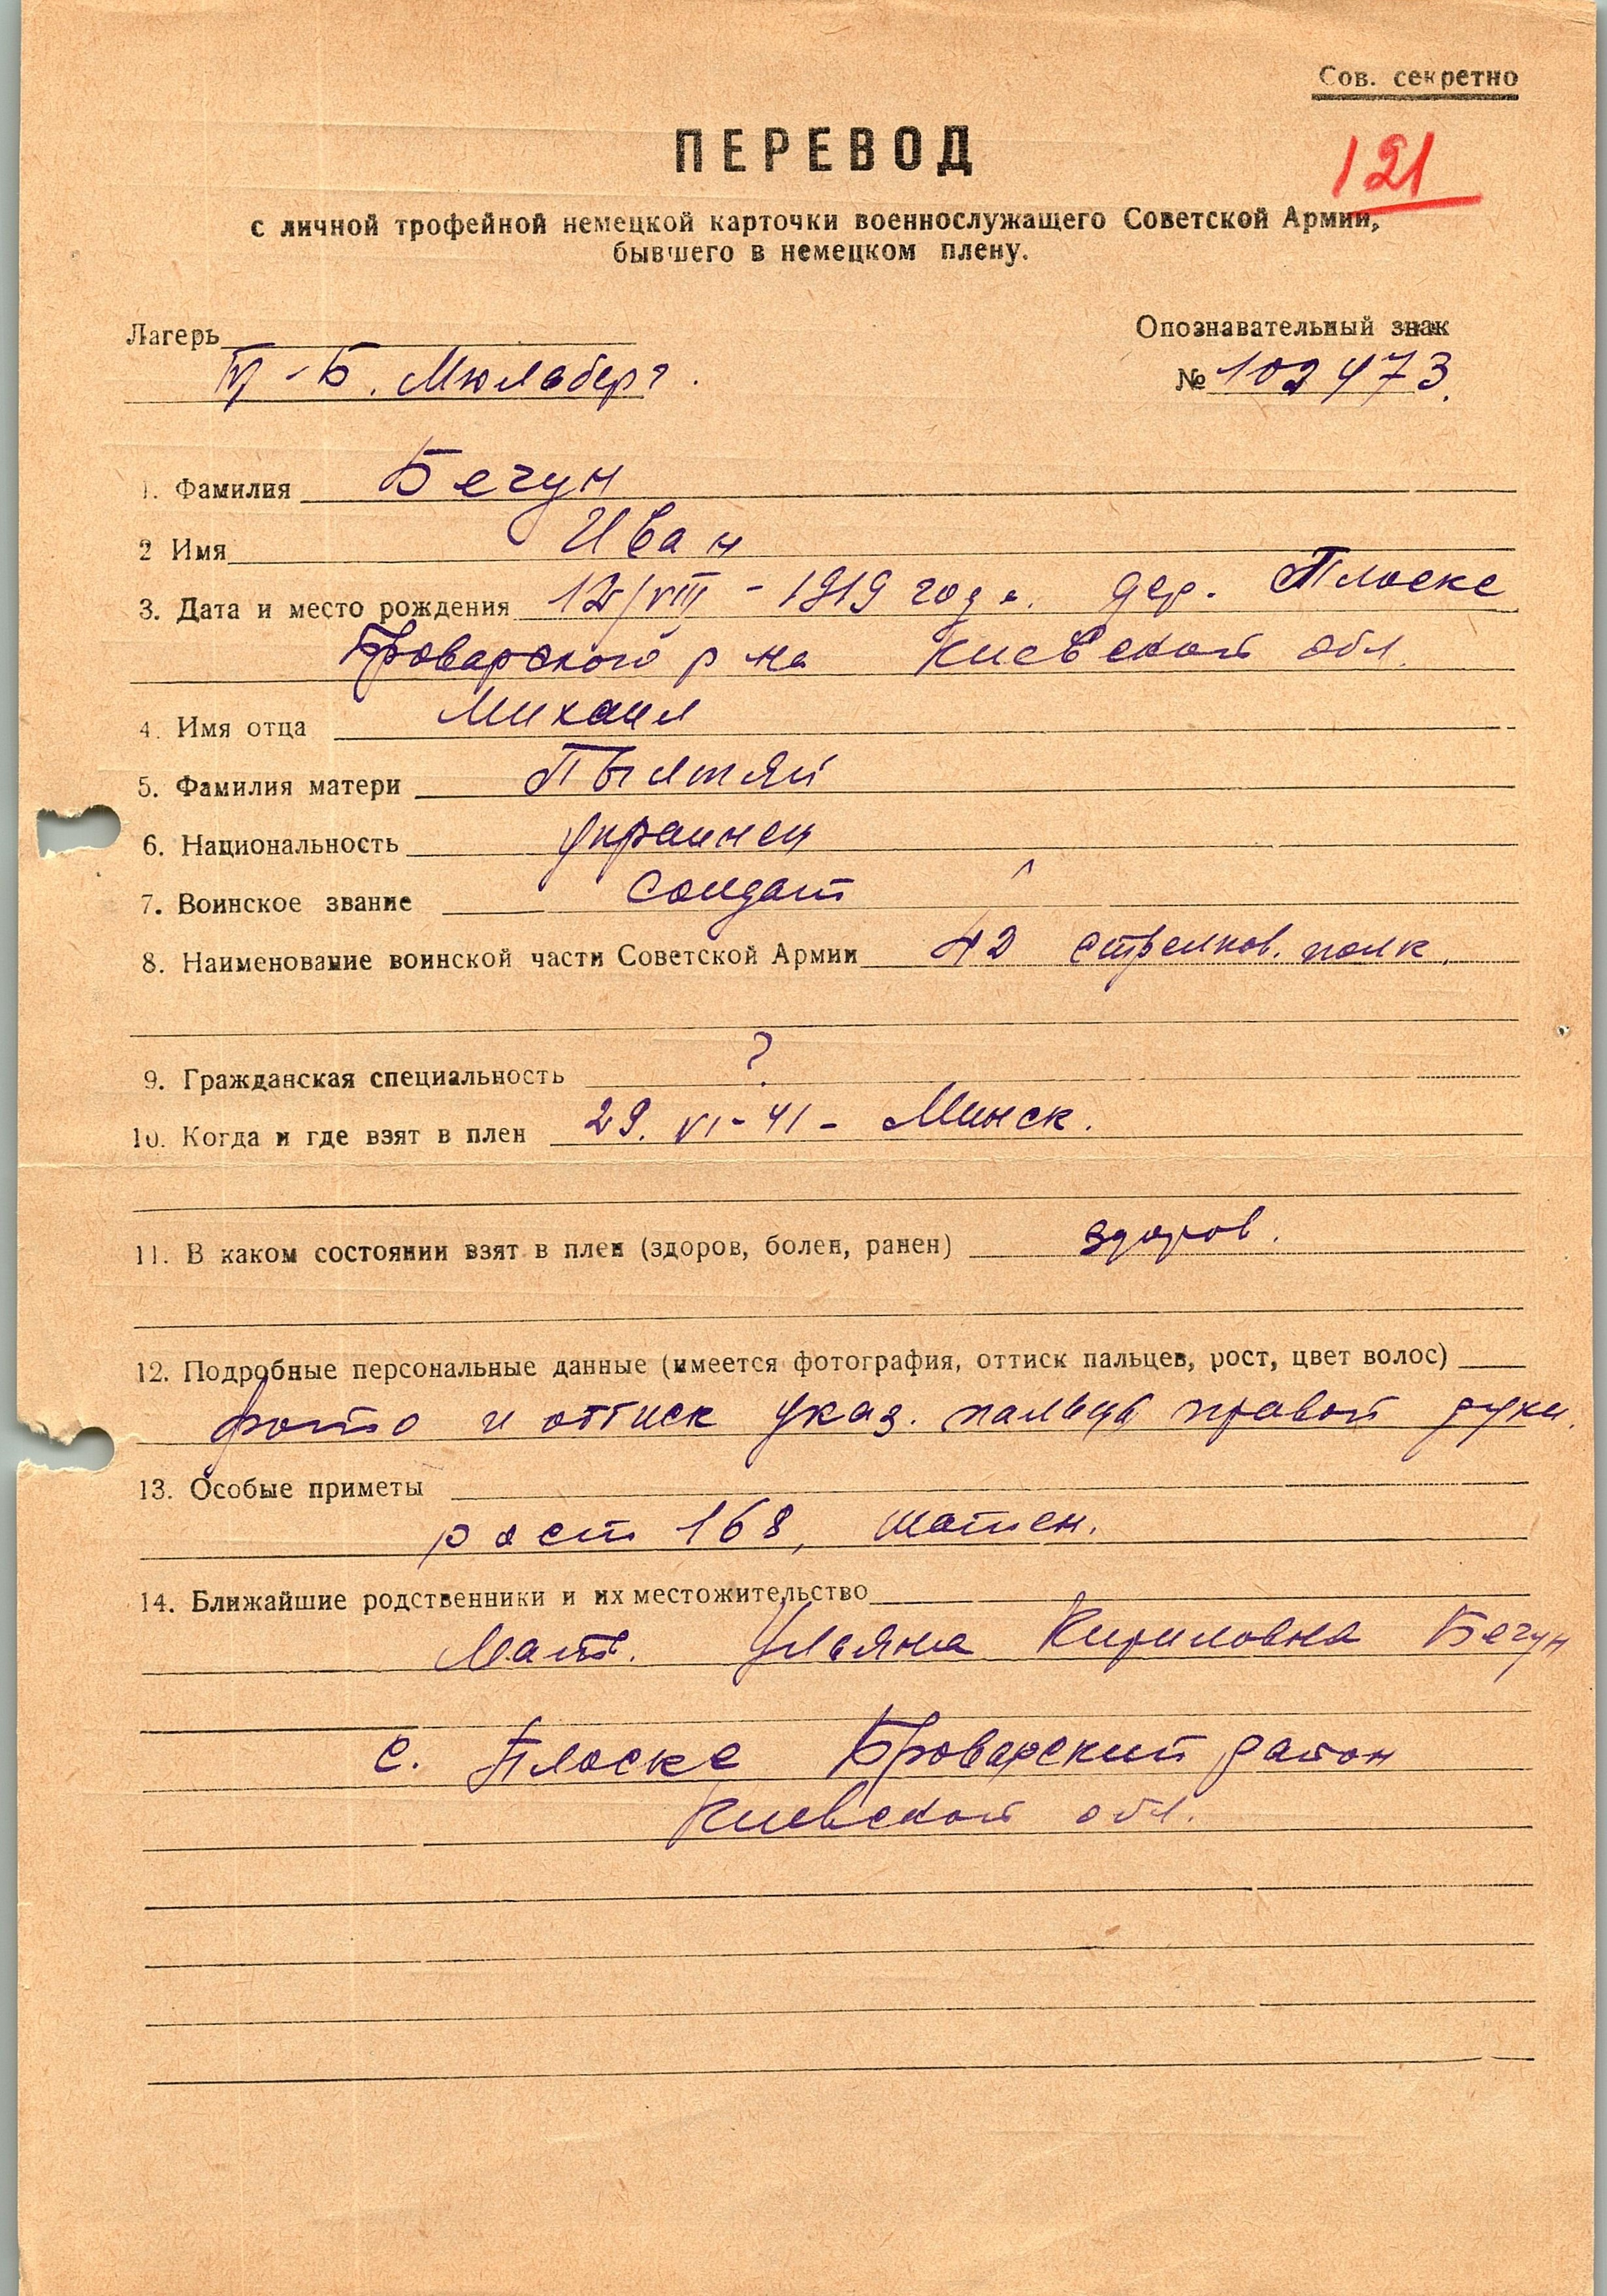 Сов. секретно
ПЕРЕВОД
121
с личной трофейной немецкой карточки военнослужащего Советской Армии,
бывшего в немецком плену.
Лагерь
IV-Б. Мюльберг.
Опознавательный знак
№ 102473.
1. Фамилия Бегун
2 Имя Иван
3. Дата и место рождения 12/VIII - 1919 года. дер. Плоске
Броварского р на Киевской обл.
4. Имя отца Михаил
5. Фамилия матери
6. Национальность украинец
7. Воинское звание солдат
8. Наименование воинской части Советской Армии 42 стрелков. полк.
9. Гражданская специальность ?
10. Когда и где взят в плен 29. VI-41 - Минск.
11. В каком состоянии взят в плен (здоров, болен, ранен) здоров.
12. Подробные персональные данные (имеется фотография, оттиск пальцев, рост, цвет волос)
фото и оттиск указ. пальца правой руки.
13. Особые приметы
рост 168, шатен.
14. Ближайшие родственники и их местожительство
Мать. Ульяна Кириловна Бегун
с. Плоске Броварский район
Киевской обл.